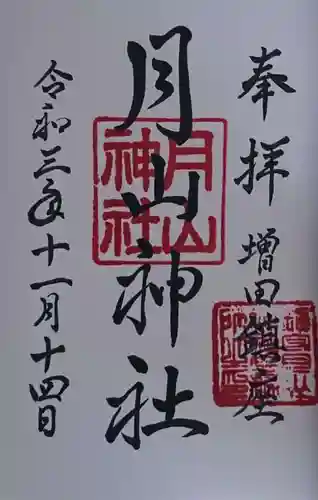 奉拝 増田鎮座
月山神社
月山神社
令和三年十一月十四日